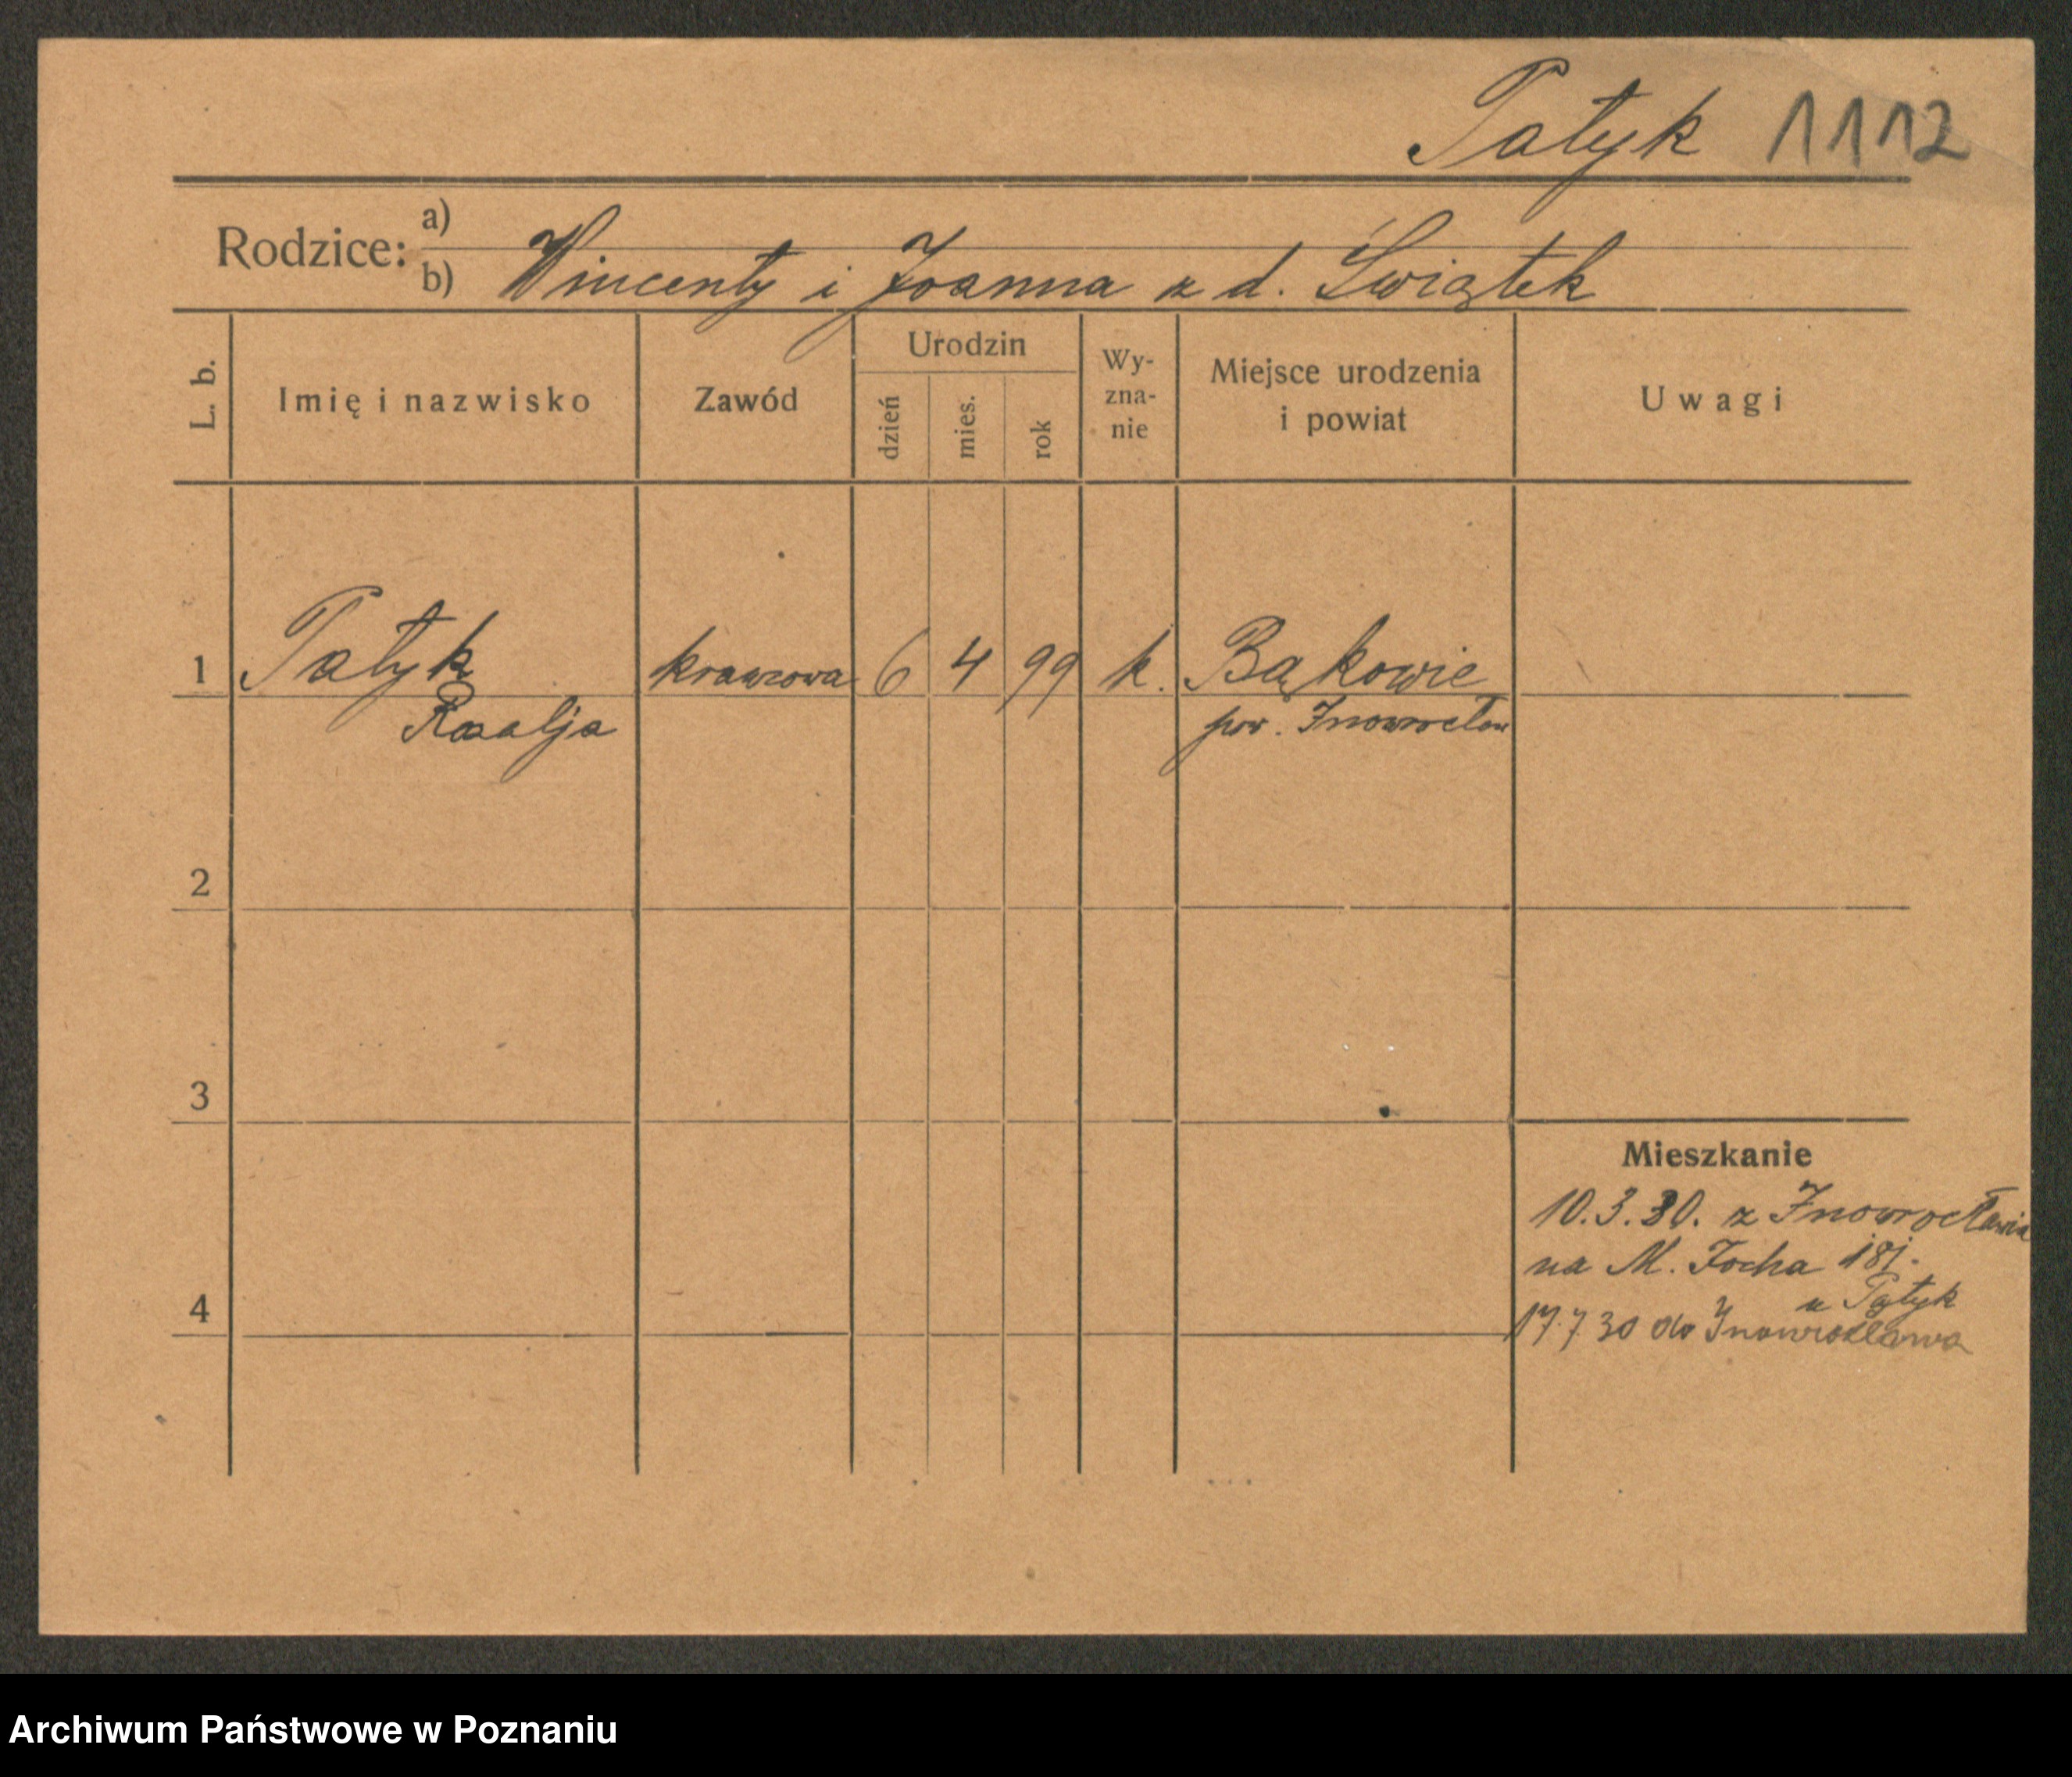 Patyk 1112
Rodzice:
a)
b) Wincenty i Joanna z d. Świątek
L. b.
Imię i nazwisko
Zawód
Urodzin
dzień
mies.
rok
Wy-
zna-
nie
Miejsce urodzenia
i powiat
Uwagi
1 Patyk krawcowa 6 4 99 k. Bąkowie
Rozalja pow. Inowrocław
2
3
Mieszkanie
10.3.30. z Inowrocławia
na M. Focha 181.
u Patyk
4
17.7 30 do Inowrocławia
Archiwum Państwowe w Poznaniu